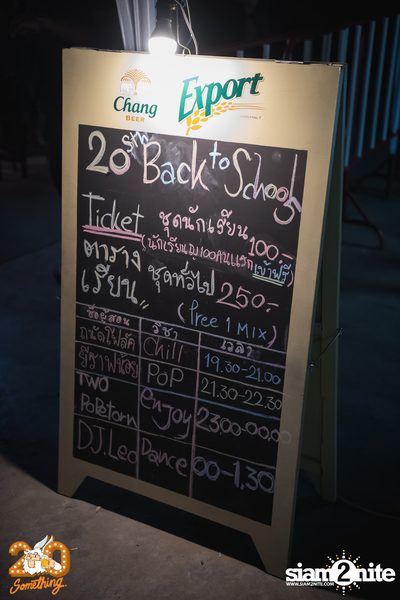 Chang
BEER
Export
20sth Back to School
Ticket ชุดนักเรียน 100.-
(นักเรียนญ.100คนแรกเข้าฟรี)
ตาราง ชุดทั่วไป 250.-
เรียน,, (free 1 MIX)
ชื่อผู้สอน วิชา เวลา
Chill 19.30-21.00
ยีราฟน้อย POP 21.30-22.30
TWO
Patetorn enjoy 23.00-00.00
DJ.Leo Dance 00-1.30
20
Something
siam2nite
WWW.SIAM2NITE.COM